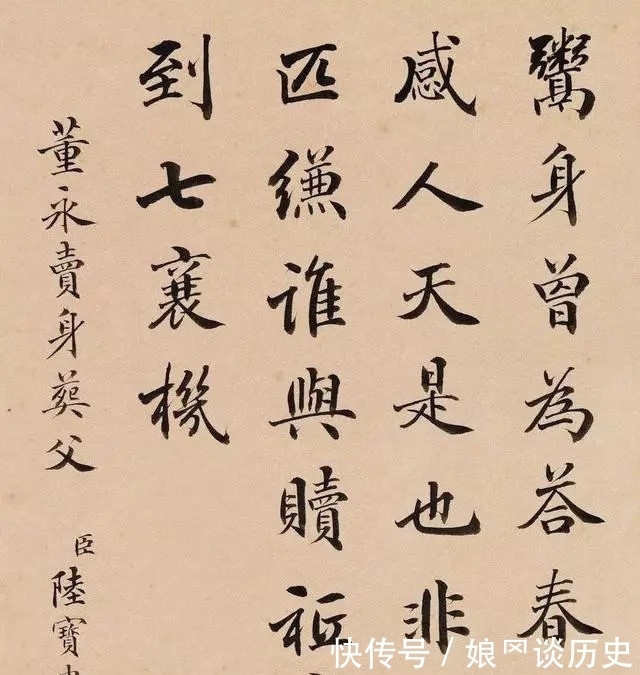 鬻身曾為荅春
感人天是也非
匹縑誰與贖
到七襄機
董永賣身葬父
臣陸寶
快传号 / 娘谈历史